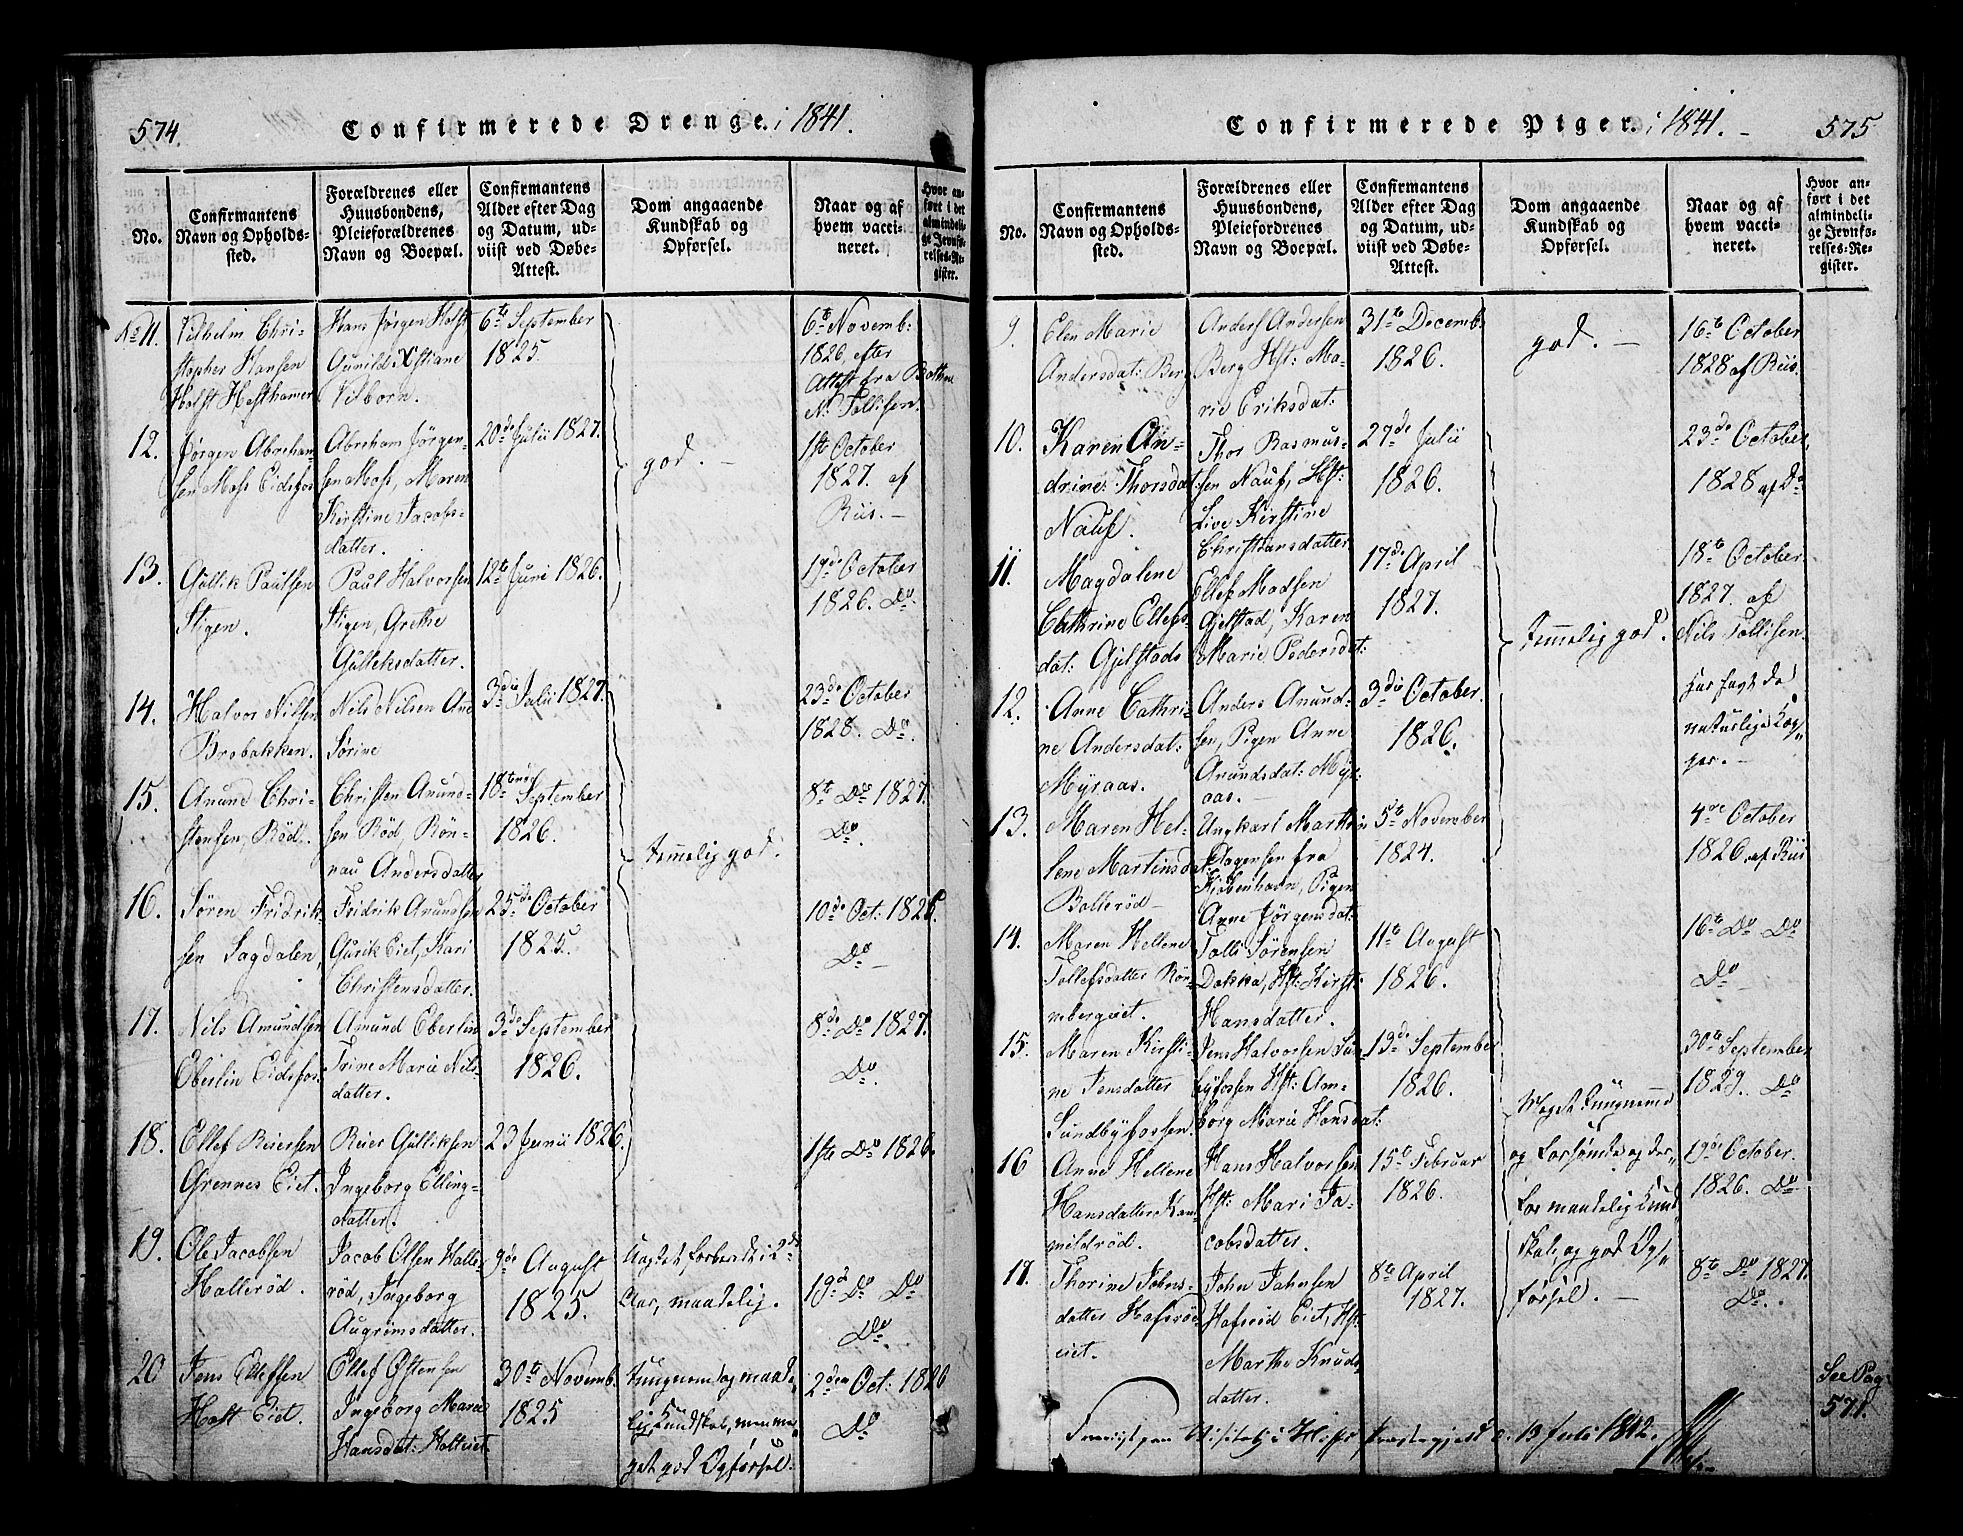 574.
Confirmerede Drenge i 1841.
No.
Confirmantens
Navn og Opholds-
sted.
Forældrenes eller
Huusbondens,
Pleieforældrenes
Navn og Boepæl.
Confirmantens
Alder efter Dag
og Datum, ud-
viist ved Døbe-
Attest.
Dom angaaende
Kundskab og
Opførsel.
Naar og af
hvem vacci-
neret.
Hvor an-
ført i det
almindeli-
ge Jevnfø-
relses-Re-
gister.
No 11.
Vilhelm Chri-
stopher Hansen
Holst Hesthamer
Hans Jørgen Holst
Gunild Xstiane
Vilborn.
6te September
1825.
6te Novemb:
1826. efter
Attest fra
N: Tollisen.
12.
Jørgen Abraham-
sen Moss Eidsfos
Abraham Jørgen-
sen Moss, Maren
Kirstine Jacobs-
datter.
20de Julii 1827.
god. -
1ste October
1827. af
Riis. -
13.
Gullik Paulsen
Stigen.
Paul Halvorsen
Stigen, Grethe
Gulleksdatter.
12te Juni 1826.
19de October
1826. Do.
14.
Halvor Nilsen
Brobakken.
Nils Nilsen Ane
Sørine
3die Julii 1827.
23de October
1828. Do.
15.
Anund Chri-
stensen, Röd.
Christen Anund-
sen Röd, Rön-
nau Andersdatter
18tende
September
1826.
temelig god.
8te Do 1827.
Do.
16.
Søren Fridrik-
sen Sagdalen,
Fridrik Anundsen
Gurik Eiet, Kari
Christensdatter.
25de October
1825.
10de Oct: 1826.
Do -
17.
Nils Amundsen
Eberlin Eidsfos.
Amund Eberlin
Trine Marie Nils-
datter.
3de September
1826.
8de Do 1827.
Do.
18.
Ellef Reiersen
Grennes Eiet.
Reier Gulliksen
Ingeborg Elling-
datter.
23 Junii 1826.
1ste Do 1826.
19.
Ole Jacobsen
Hallerød.
Jacob Olsen Halle-
rød, Ingeborg
Augrimsdatter.
9de August
1825.
i 2det
Aar, maadelig.
19d Do Do
Do
20
Jens Ellefsen
Holt Eiet.
Ellef Østensen
Ingeborg Marie
Hansdat: Holteiet.
30te Novemb.
1825
Tungnem og maade-
lig Kundskab, men me-
get god Opførsel.
2den Oct: 1826
Do
Confirmerede Piger i 1841. -
575
No.
Confirmantens
Navn og Opholds-
sted.
Forældrenes eller
Huusbondens,
Pleiefordrenes
Navn og Boepæl.
Confirmantens
Alder efter Dag
og Datum, ud-
viist ved Døbe-
Attest.
Dom angaaende
Kundskab og
Opførsel.
Naar og af
hvem vacci-
neret.
Hvor an-
ført i det
almindeli-
ge Jevnfø-
relses-Re-
gister.
9.
Elen Marie
Andersdat: Berg
Anders Andersen
Berg Hst: Ma-
rie Eriksdat:
31te Decemb:
1826.
god. -
16te October
1828 af Riis.
10.
Karen An-
drine Thorsdat
Nauf.
Thor Rasmus-
sen Nauf, Hst:
Live Kirstine
Christiansdatter
27de Julii
1826.
23de October
1828 af Do
11.
Magdalene
Cathrine Ellefs-
dat: Gjelstad
Ellef Madsen
Gjelstad, Karen
Marie Pedersdat:
17de April
1827.
temelig god.
18te October
1827. af
Nils Tollisen.
12.
Anne Cathri-
ne Andersdat:
Myraas.
Anders Anund-
sen, Pigen Anne
Anundsdat: Myr-
aas. -
3die October.
1826.
har havt de
naturlige Kop-
per. -
13.
Maren Hel-
lene Martinsdat
Bollerød -
Ungkarl Marthin
fra
Kiøbenhavn, Pigen
Anne Jørgensdat:
5te November
1824.
4de October
1826. af Riis
14.
Maren Hellene
Tollefsdatter Røn-
nbergeiet.
Tolli Sørensen
Dokka, Hst: Kirst:
Hansdatter.
11te August
1826.
16te Do Do
Do
15.
Maren Kirsti-
ne Jensdatter
Sundbyfossen.
Jens Halvorsen Sun-
byfossen Hst: Am-
borg Marie Hansdat:
13de September
1826.
30te September
1829. Do
16
Anne Hellene
Hansdatter Kam-
mildrød.
Hans Halvorsen
Hst: Mari Ja-
cobsdatter.
15te Februar
1826.
Meget tungnemme
og forsømte, og der-
for maadelig Kund-
skab, og god Op-
førsel. -
19de October.
1826. Do
17.
Thorine Johns-
datter Hafsrød
eiet.
John Johnsen
Hafsrød Eiet, Hst:
Marthe Knuds-
datter.
8te April
1827.
8te Do 1827.
Do.
See Pag:
571.
Fremvist paa Visitats i Præstegjeld d: 13 Juli 1842.